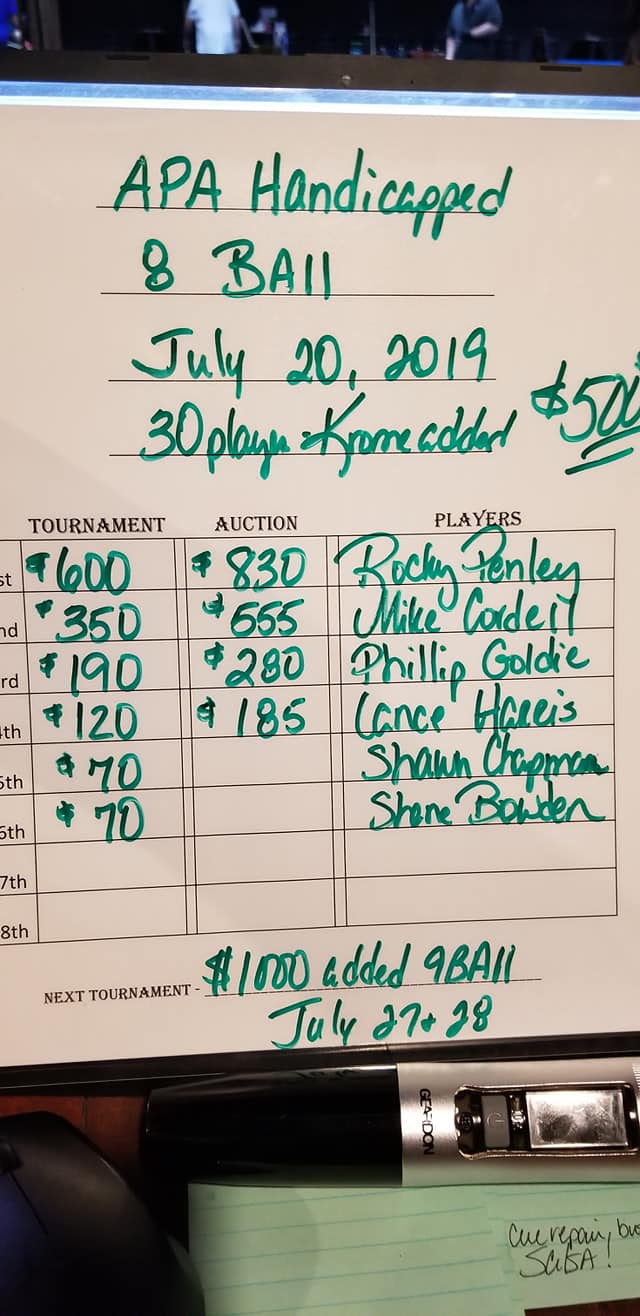 APA Handicapped
8 BAll
July 20, 2019
30 player - Krome added $500
TOURNAMENT AUCTION PLAYERS
st $600 $830 Rocky Penley
nd $350 $555 Mike Cordell
rd $190 $280 Phillip Goldie
4th $120 $185 Lance Harris
5th $70 Shawn Chapman
6th $70 Shane Bowden
7th
8th
NEXT TOURNAMENT - $1000 added 9BAll
July 27+28
GEARDON
Cue repair,